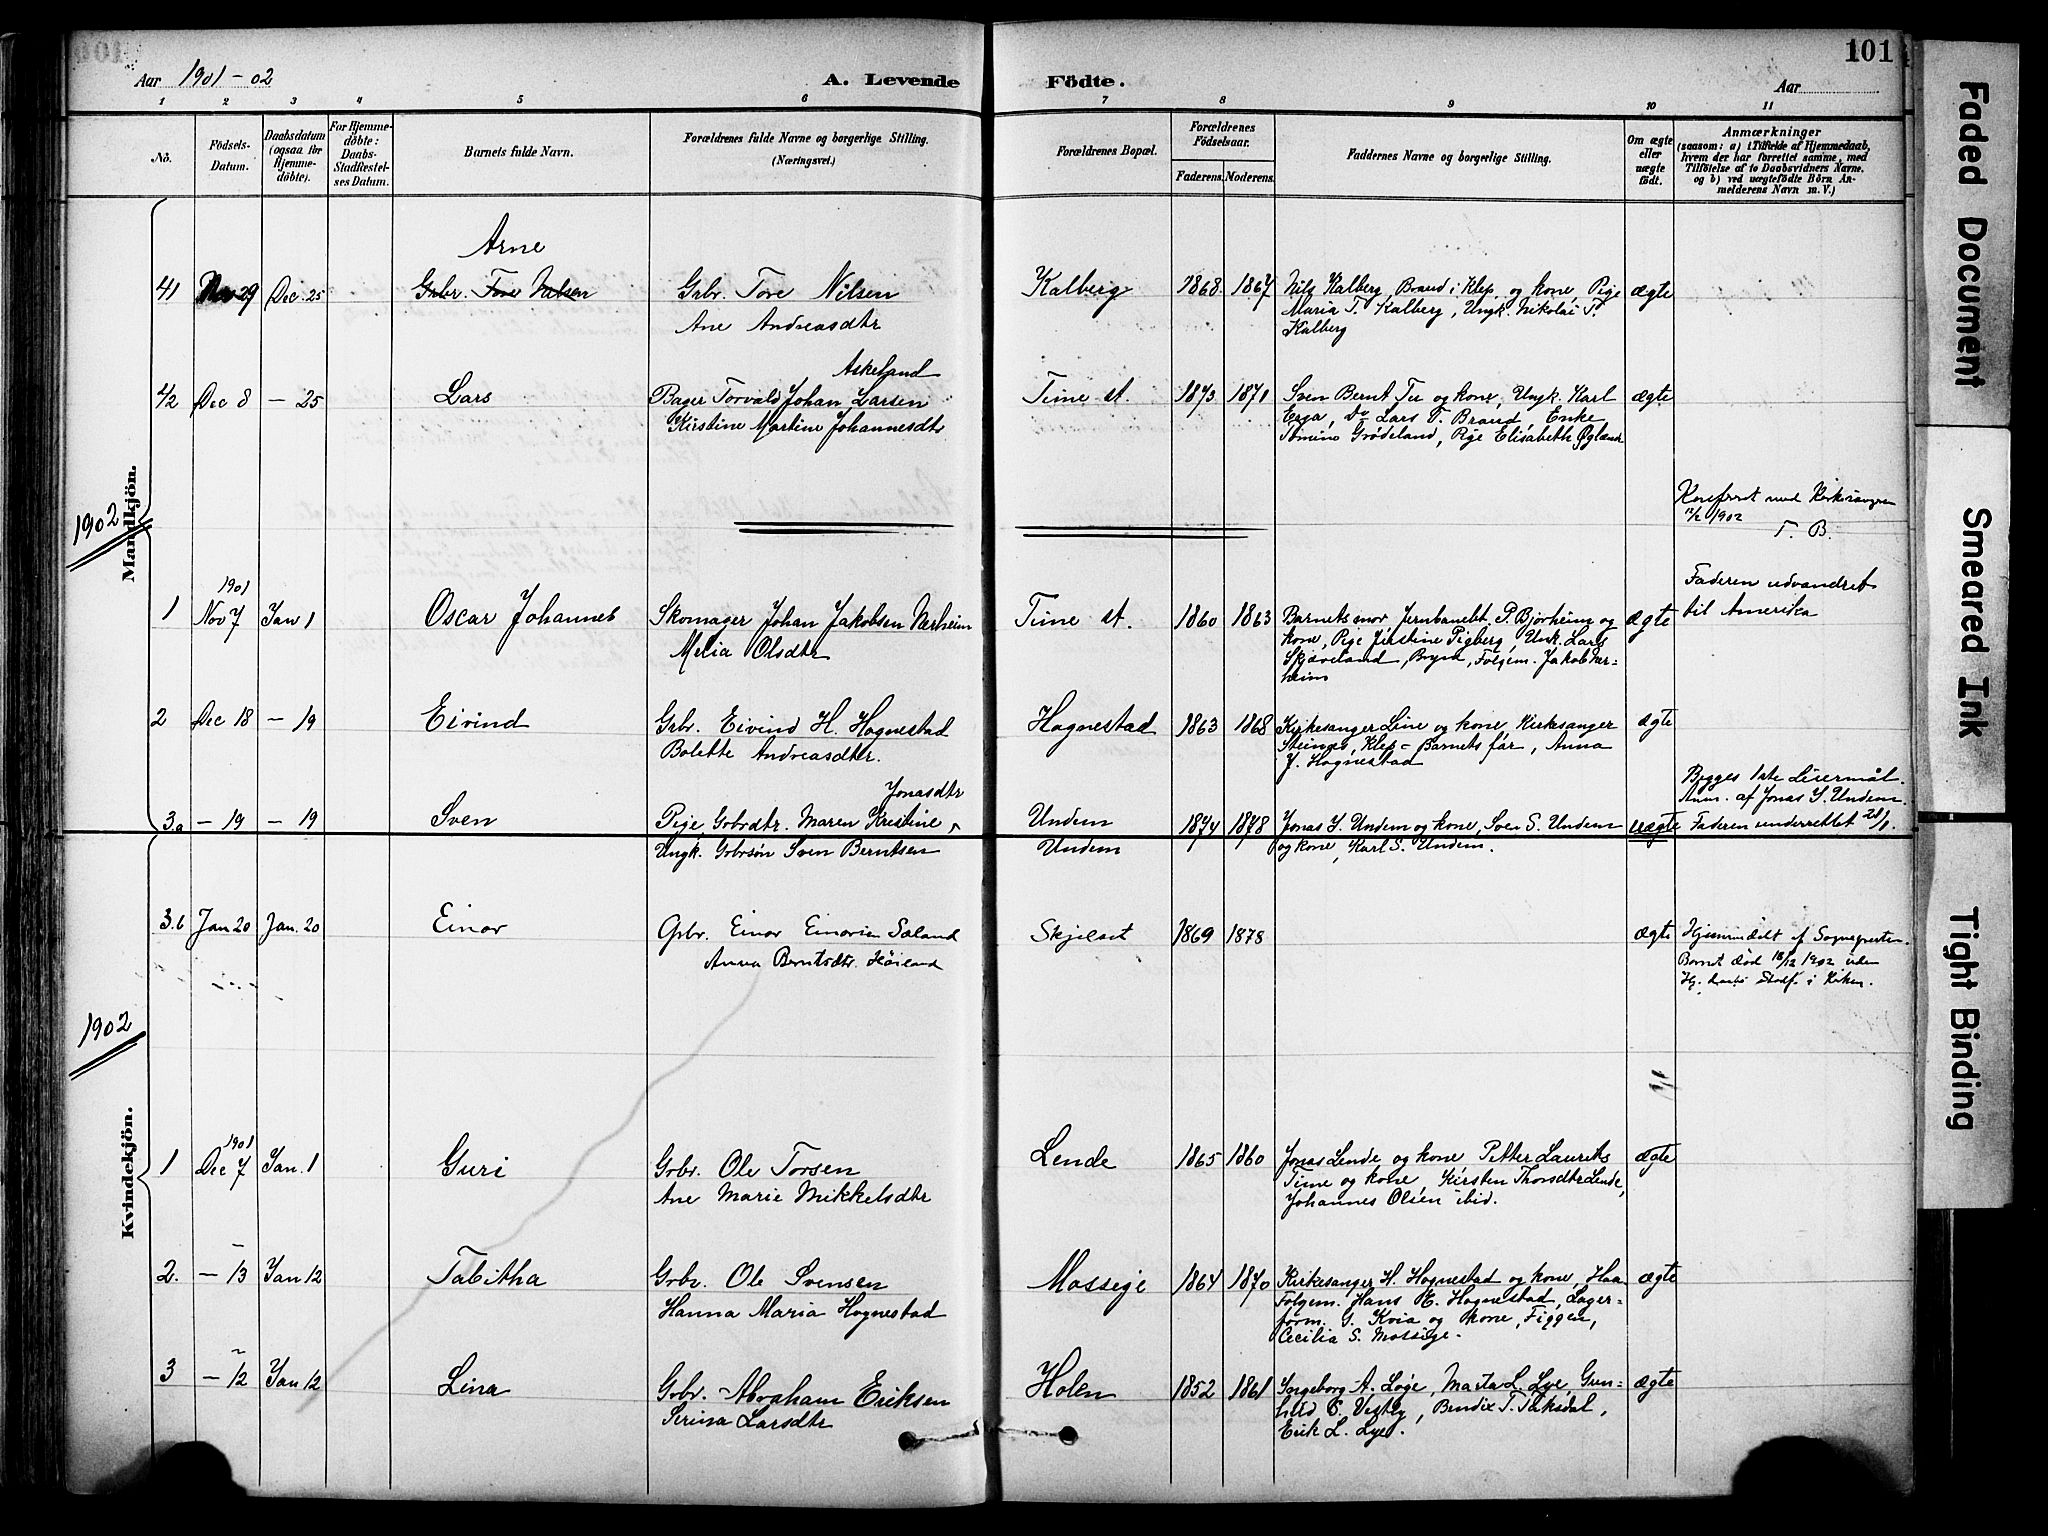 101
Aar 1901-02
A. Levende
Födte.
Aar
1 2 3 4 5 6 7 8 9 10 11
No.
Födsels-
Datum.
Daabsdatum
(ogsaa for
Hjemme-
döbte).
For Hjemme-
döbte:
Daabs-
Stadfæstel-
ses Datum.
Barnets fulde Navn.
Forældrenes fulde Navne og borgerlige Stilling.
(Næringsvei.)
Forældrenes Bopæl.
Forældrenes
Födselsaar.
Faderens. Moderens.
Faddernes Navne og borgerlige Stilling.
Om ægte
eller
uægte
födt.
Anmærkninger
(saasom: a) i Tilfælde af Hjemmedaab,
hvem der har forrettet samme, med
Tilföielse af to Daabsvidners Navne,
og b) ved uægtefödte Börn An-
melderens Navn m. V.)
Mandkjön.
Arne
41 Nov 29 Dec. 25 Grbr. Tore Nilsen Grbr. Tore Nilsen Kalberg 1868 1867 Nils Kalberg, Braud i Klep, og kone, Pige ægte
Ane Andreasdtr Maria T. Kalberg, Ungk. Nikolai T.
Kalberg
Askeland
42 Dec 8 - 25 Lars Bager Torvald Johan Larsen Time st. 1873 1871 Sven Bernt Tu og kone, Ungk. Karl ægte
Kirstine Martine Johannesdtr Erga, Do Lars T. Braud, Enke
Tomine Grødeland, Pige Elisabeth Øgland
Konferert med Kirkesangeren
12/2 1902
T. B.
1902
1901
1 Nov 7 Jan 1 Oscar Johannes Skomager Johan Jakobsen Nerheim Time st. 1860 1863 Barnets mor, Jernbanebt. P. Bjorheim og ægte
Faderen udvandret
til Amerika
Melia Olsdtr kone, Pige Jirstine Pigberg, Unk. Lars
Skjæveland, Bryne, Folgem. Jakob Ner-
heim
2 Dec 18 - 19 Eivind Grbr. Eivind H. Hognestad Hognestad 1863 1868 Kirkesanger Line og kone, Kirkesanger ægte
Bolette Andreasdtr. Steinnes, Klep - Barnets far, Anna
J. Hognestad
Jonasdtr
3.a - 19 - 19 Sven Pige, Grbrdtr. Maren Kristine, Undem 1874 1878 Jonas S. Undem og kone, Sven S. Undem uægte
Begges 1ste Leiermål.
Anm. af Jonas S. Undem.
Faderen underrettet 21/1.
Ungk. Grbrsön Sven Berntsen Undem og kone, Karl S. Undem.
3.b Jan 20 Jan. 20 Einar Grbr. Einar Einarsen Sæland Skjelset 1869 1878 ægte
Hjemmedøbt af Sognepresten.
Barnet død 18/12 1902 uden
Hj. daabs Stadf. i Kirken.
Anna Berntsdtr. Høiland
1902
Kvindekjön.
1901
1 Dec 7 Jan. 1 Guri Grbr. Ole Torsen Lende 1865 1860 Jonas Lende og kone Petter Laurits ægte
Ane Marie Mikkelsdtr Time og kone, Kirsten Thorsdtr Lende,
Johannes Olsen ibid.
2. - 13 Jan 12 Tabitha Grbr. Ole Svensen Mossige 1864 1870 Kirkesanger H. Hognestad og kone, Haa ægte
Hanna Maria Hognestad Folgem. Hans E. Hognestad, Lager-
form. G. Kvia og kone, Figgen,
Cecilia S. Mossige.
3 - 12 Jan 12 Lina Grbr. Abraham Eriksen Holen 1852 1861 Ingeborg A. Løge, Marta L. Lye, Gun- ægte
Serina Larsdtr hild E. Vestly, Bendix T. Taksdal,
Erik L. Lye.
Faded Document
Smeared Ink
Tight Binding